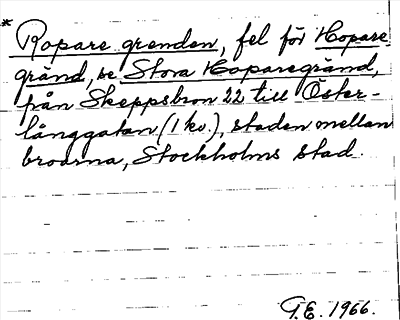 * Ropare grenden, fel för Hopare
gränd, se Stora Hoparegränd,
från Skeppsbron 22 till Öster-
långgatan (1 kv.), staden mellan
broarna, Stockholms stad.
G.E. 1966.